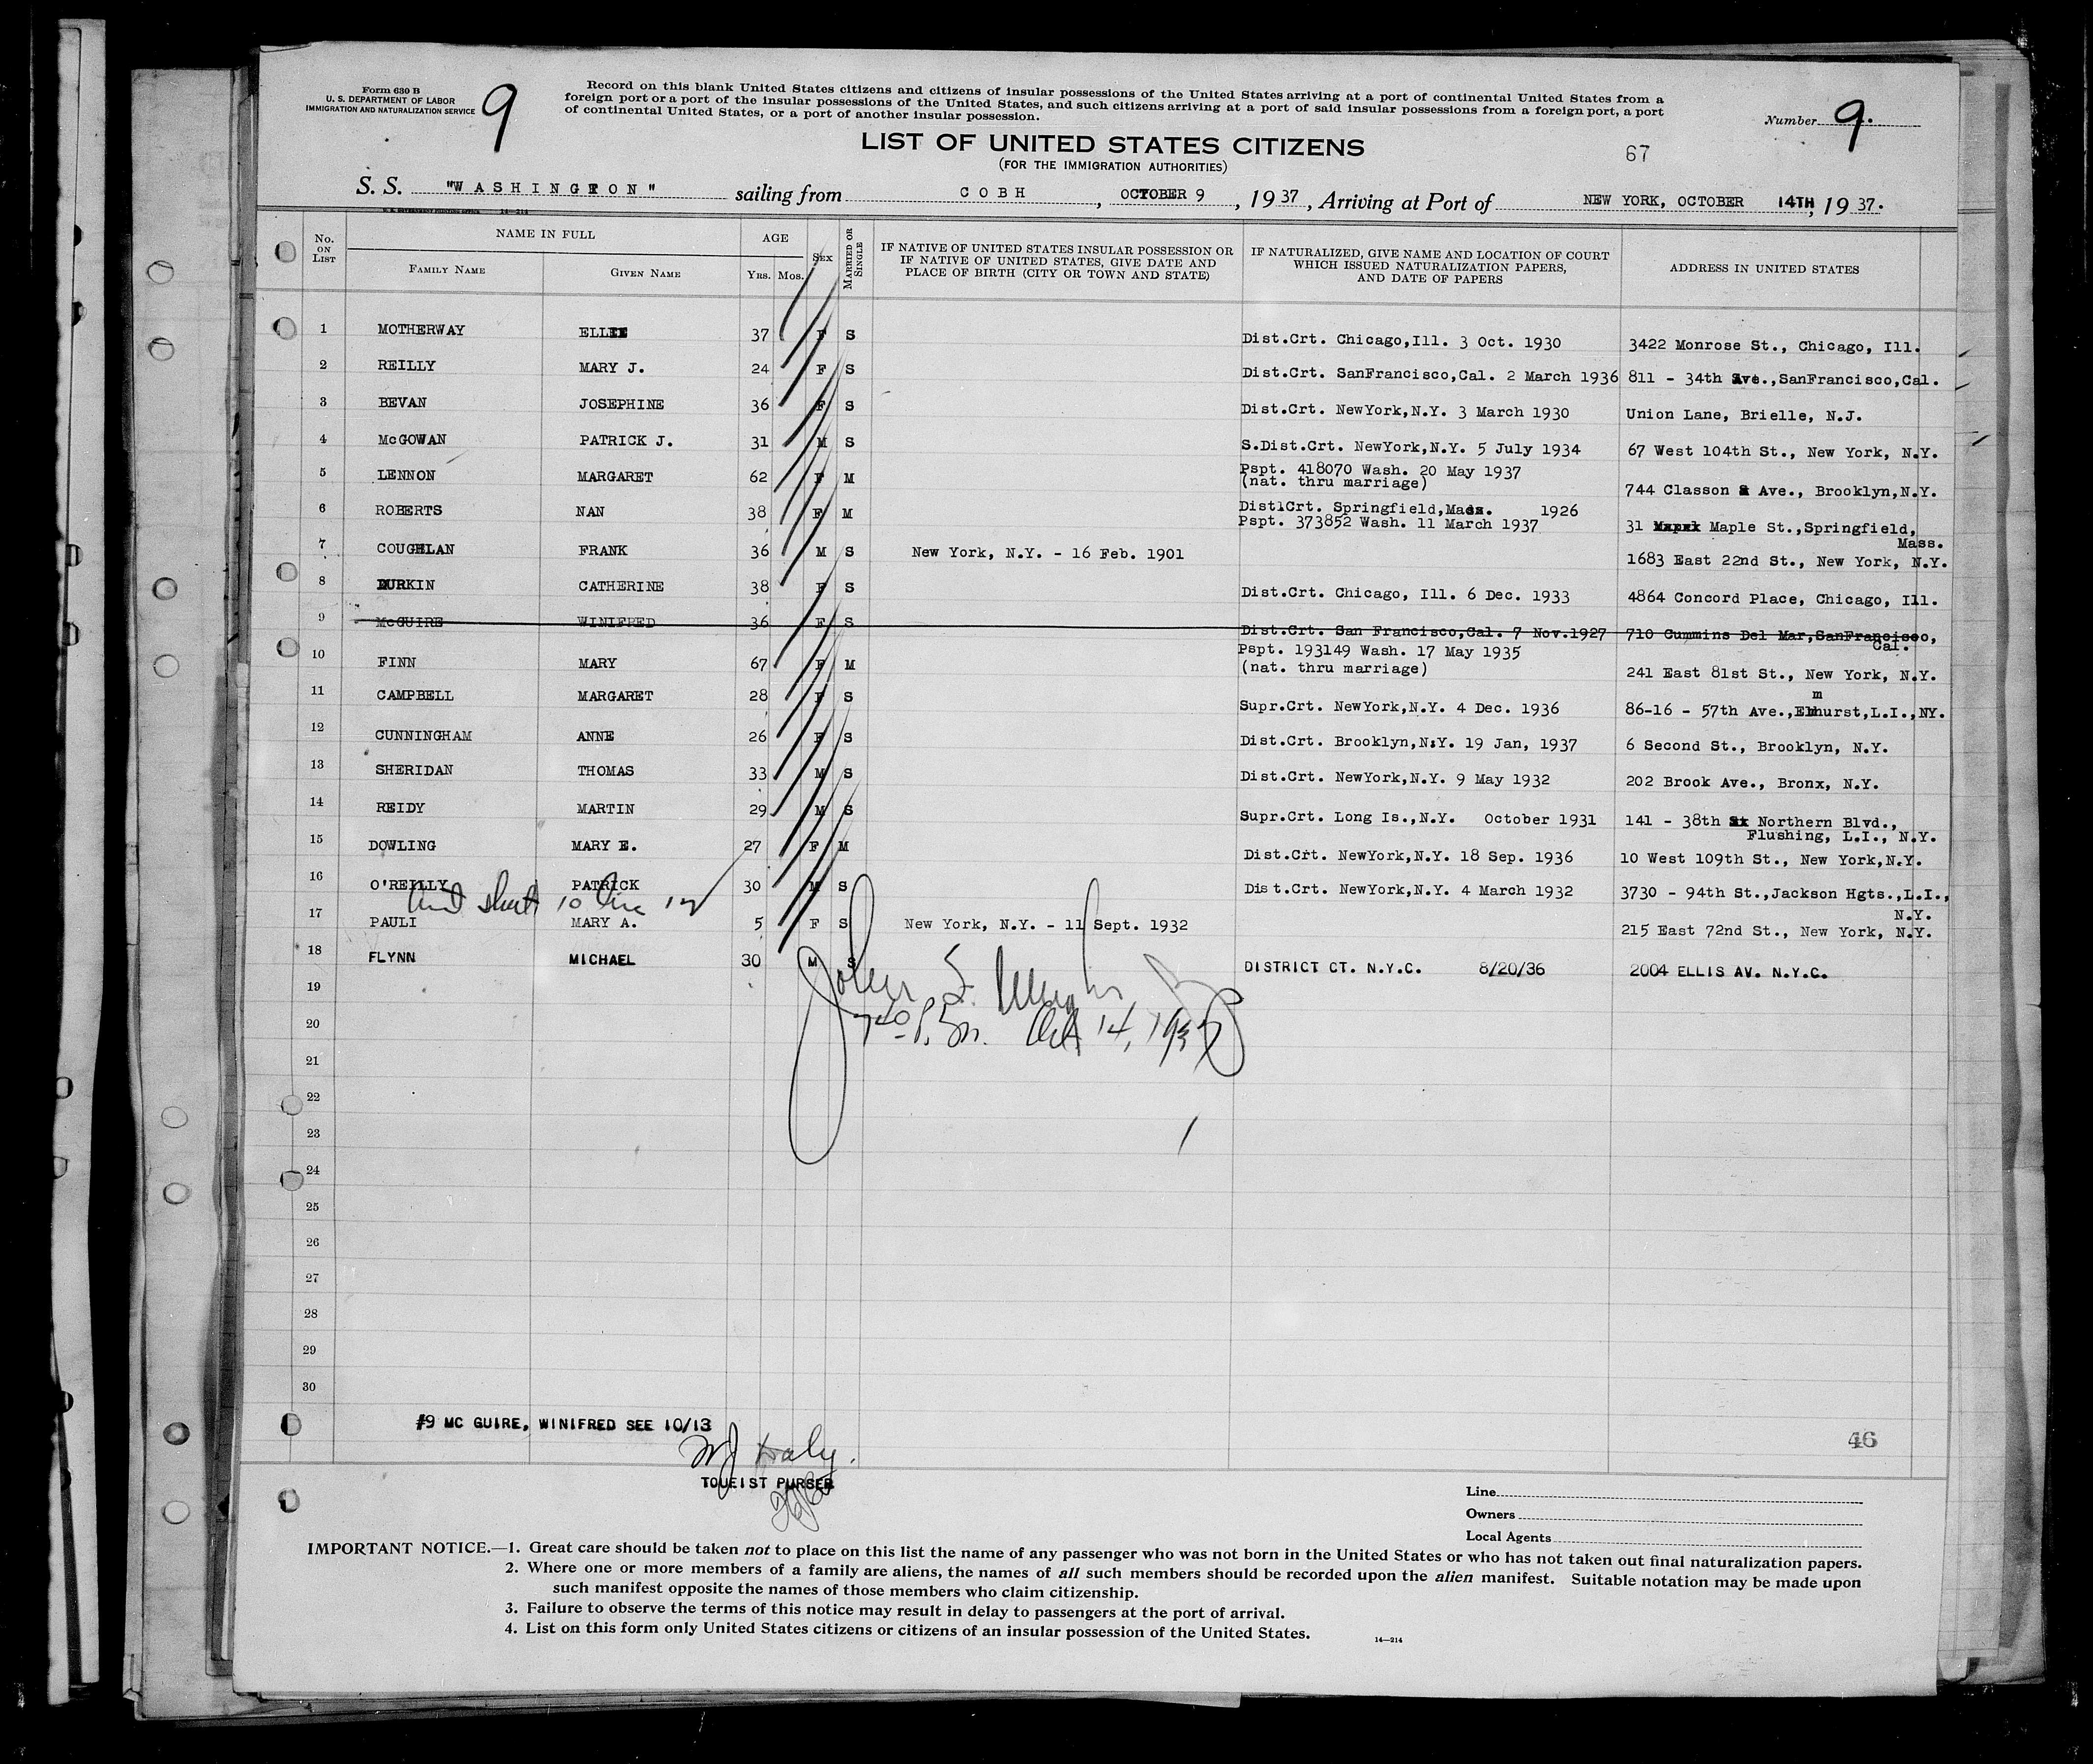 Form 630 B
U. S. DEPARTMENT OF LABOR
IMMIGRATION AND NATURALIZATION SERVICE
9
Record on this blank United States citizens and citizens of insular possessions of the United States arriving at a port of continental United States from a
foreign port or a port of the insular possessions of the United States, and such citizens arriving at a port of said insular possessions from a foreign port, a port
of continental United States, or a port of another insular possession.
Number 9.
LIST OF UNITED STATES CITIZENS
(FOR THE IMMIGRATION AUTHORITIES)
67
S. S. "WASHINGTON" sailing from COBH, OCTOBER 9, 1937, Arriving at Port of NEW YORK, OCTOBER 14TH, 1937.
14—214
No. ON LIST NAME IN FULL FAMILY NAME GIVEN NAME AGE YRS. MOS. SEX MARRIED OR SINGLE IF NATIVE OF UNITED STATES INSULAR POSSESSION OR IF NATIVE OF UNITED STATES, GIVE DATE AND PLACE OF BIRTH (CITY OR TOWN AND STATE) IF NATURALIZED, GIVE NAME AND LOCATION OF COURT WHICH ISSUED NATURALIZATION PAPERS, AND DATE OF PAPERS ADDRESS IN UNITED STATES
1 MOTHERWAY 37 F S Dist.Crt. Chicago,Ill. 3 Oct. 1930 3422 Monrose St., Chicago, Ill.
2 REILLY MARY J. 24 F S Dist.Crt. SanFrancisco,Cal. 2 March 1936 811 - 34th Ave.,SanFrancisco,Cal.
3 BEVAN JOSEPHINE 36 F S Dist.Crt. NewYork,N.Y. 3 March 1930 Union Lane, Brielle, N.J.
4 McGOWAN PATRICK J. 31 M S S.Dist.Crt. NewYork,N.Y. 5 July 1934 67 West 104th St., New York, N.Y.
5 LENNON MARGARET 62 F M Pspt. 418070 Wash. 20 May 1937
(nat. thru marriage) 744 Classon Ave., Brooklyn,N.Y.
6 ROBERTS NAN 38 F M Dist1Crt. Springfield,Mass. 1926
Pspt. 373852 Wash. 11 March 1937 31 Maple St.,Springfield,
Mass.
7 COUGHLAN FRANK 36 M S New York, N.Y. - 16 Feb. 1901 1683 East 22nd St., New York, N.Y.
8 DURKIN CATHERINE 38 F S Dist.Crt. Chicago, Ill. 6 Dec. 1933 4864 Concord Place, Chicago, Ill.
9 McGUIRE WINIFRED 36 F S Dist.Crt. San Francisco,Cal. 7 Nov.1927 710 Cummins Del Mar,SanFrancisco,
Cal.
10 FINN MARY 67 F M Pspt. 193149 Wash. 17 May 1935
(nat. thru marriage) 241 East 81st St., New York, N.Y.
11 CAMPBELL MARGARET 28 F S Supr.Crt. NewYork,N.Y. 4 Dec. 1936 86-16 - 57th Ave.,Elmhurst,L.I.,NY.
12 CUNNINGHAM ANNE 26 F S Dist.Crt. Brooklyn,N.Y. 19 Jan, 1937 6 Second St., Brooklyn, N.Y.
13 SHERIDAN THOMAS 33 M S Dist.Crt. NewYork,N.Y. 9 May 1932 202 Brook Ave., Bronx, N.Y.
14 REIDY MARTIN 29 M S Supr.Crt. Long Is.,N.Y. October 1931 141 - 38th Northern Blvd.,
Flushing, L.I., N.Y.
15 DOWLING MARY E. 27 F M Dist.Crt. NewYork,N.Y. 18 Sep. 1936 10 West 109th St., New York,N.Y.
16 O'REILLY PATRICK 30 M S Dist.Crt. NewYork,N.Y. 4 March 1932 3730 - 94th St.,Jackson Hgts.,L.I.,
N.Y.
Aunt sheet 10 line
17 PAULI MARY A. 5 F S New York, N.Y. - 11 Sept. 1932 215 East 72nd St., New York, N.Y.
18 FLYNN MICHAEL 30 M S DISTRICT CT. N.Y.C. 8/20/36 2004 ELLIS AV. N.Y.C.
John S.
Oct 14, 1937
19
20
21
22
23
24
25
26
27
28
29
30
#9 MC GUIRE, WINIFRED SEE 10/13
46
TOUEIST PURSER
Line
Owners
Local Agents
IMPORTANT NOTICE.—1. Great care should be taken not to place on this list the name of any passenger who was not born in the United States or who has not taken out final naturalization papers.
2. Where one or more members of a family are aliens, the names of all such members should be recorded upon the alien manifest. Suitable notation may be made upon
such manifest opposite the names of those members who claim citizenship.
3. Failure to observe the terms of this notice may result in delay to passengers at the port of arrival.
4. List on this form only United States citizens or citizens of an insular possession of the United States.
14—214